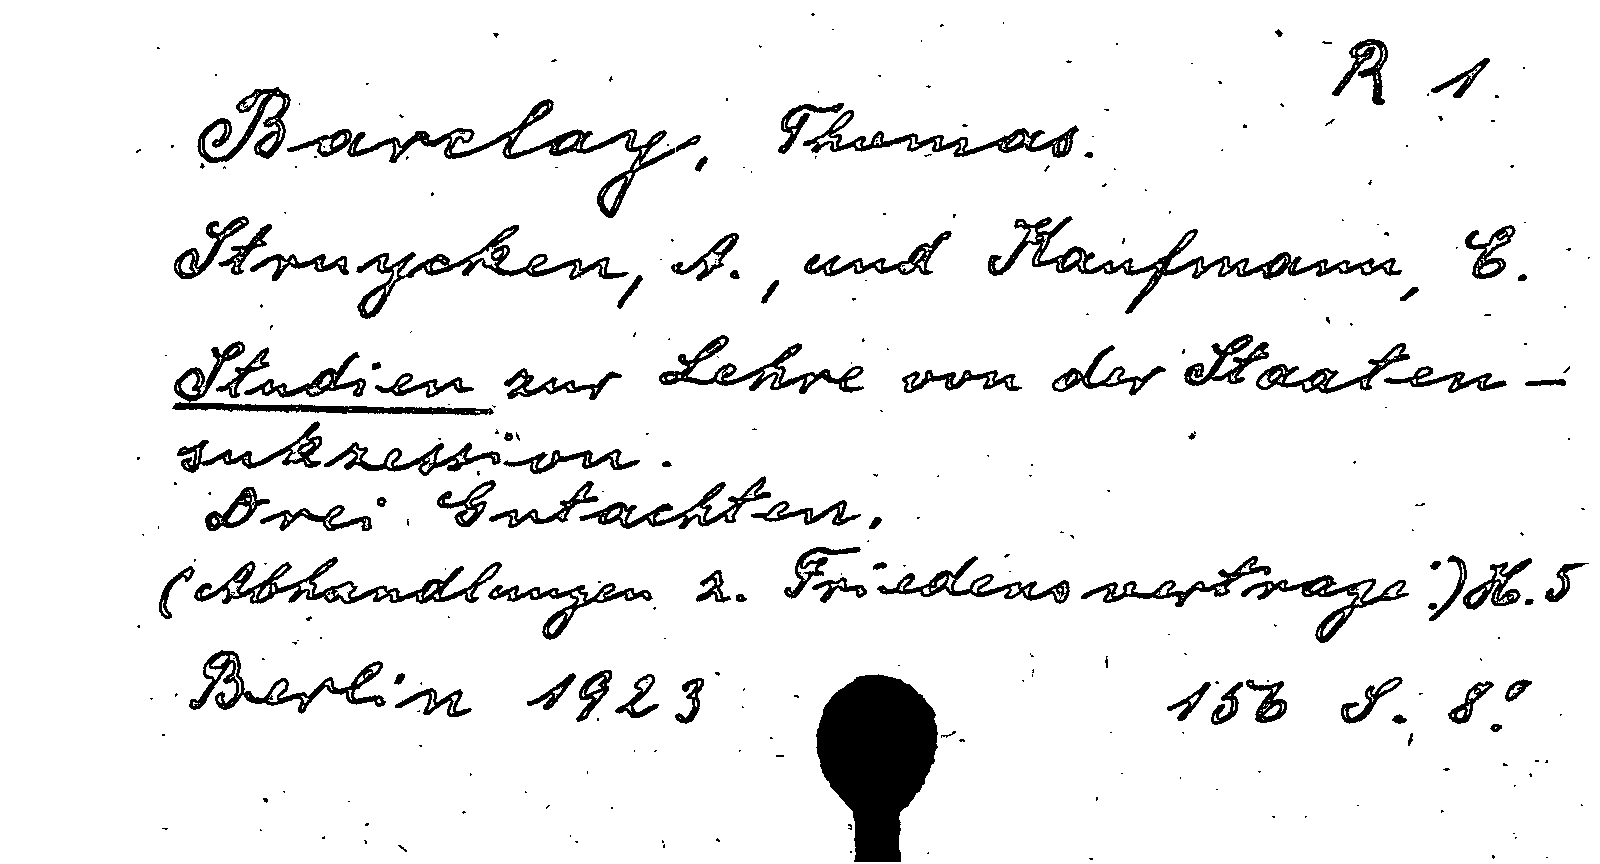 R 1
Barclay, Thomas.
Struycken, A., und Kaufmann, E.
Studien zur Lehre von der Staaten-
sukzession.
Drei Gutachten.
(Abhandlungen z. Friedensvertrage:) H. 5
Berlin 1923 156 S. 8°.